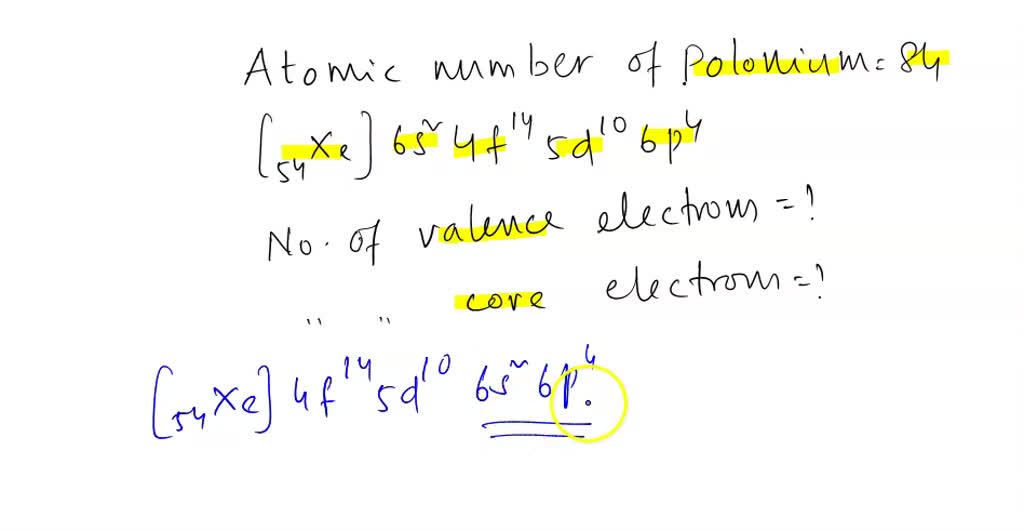 Atomic number of Polonium = 84
[₅₄Xe] 6s² 4f¹⁴ 5d¹⁰ 6p⁴
No. of valence electrons = ?
" " core electrons = ?
[₅₄Xe] 4f¹⁴ 5d¹⁰ 6s² 6p⁴.